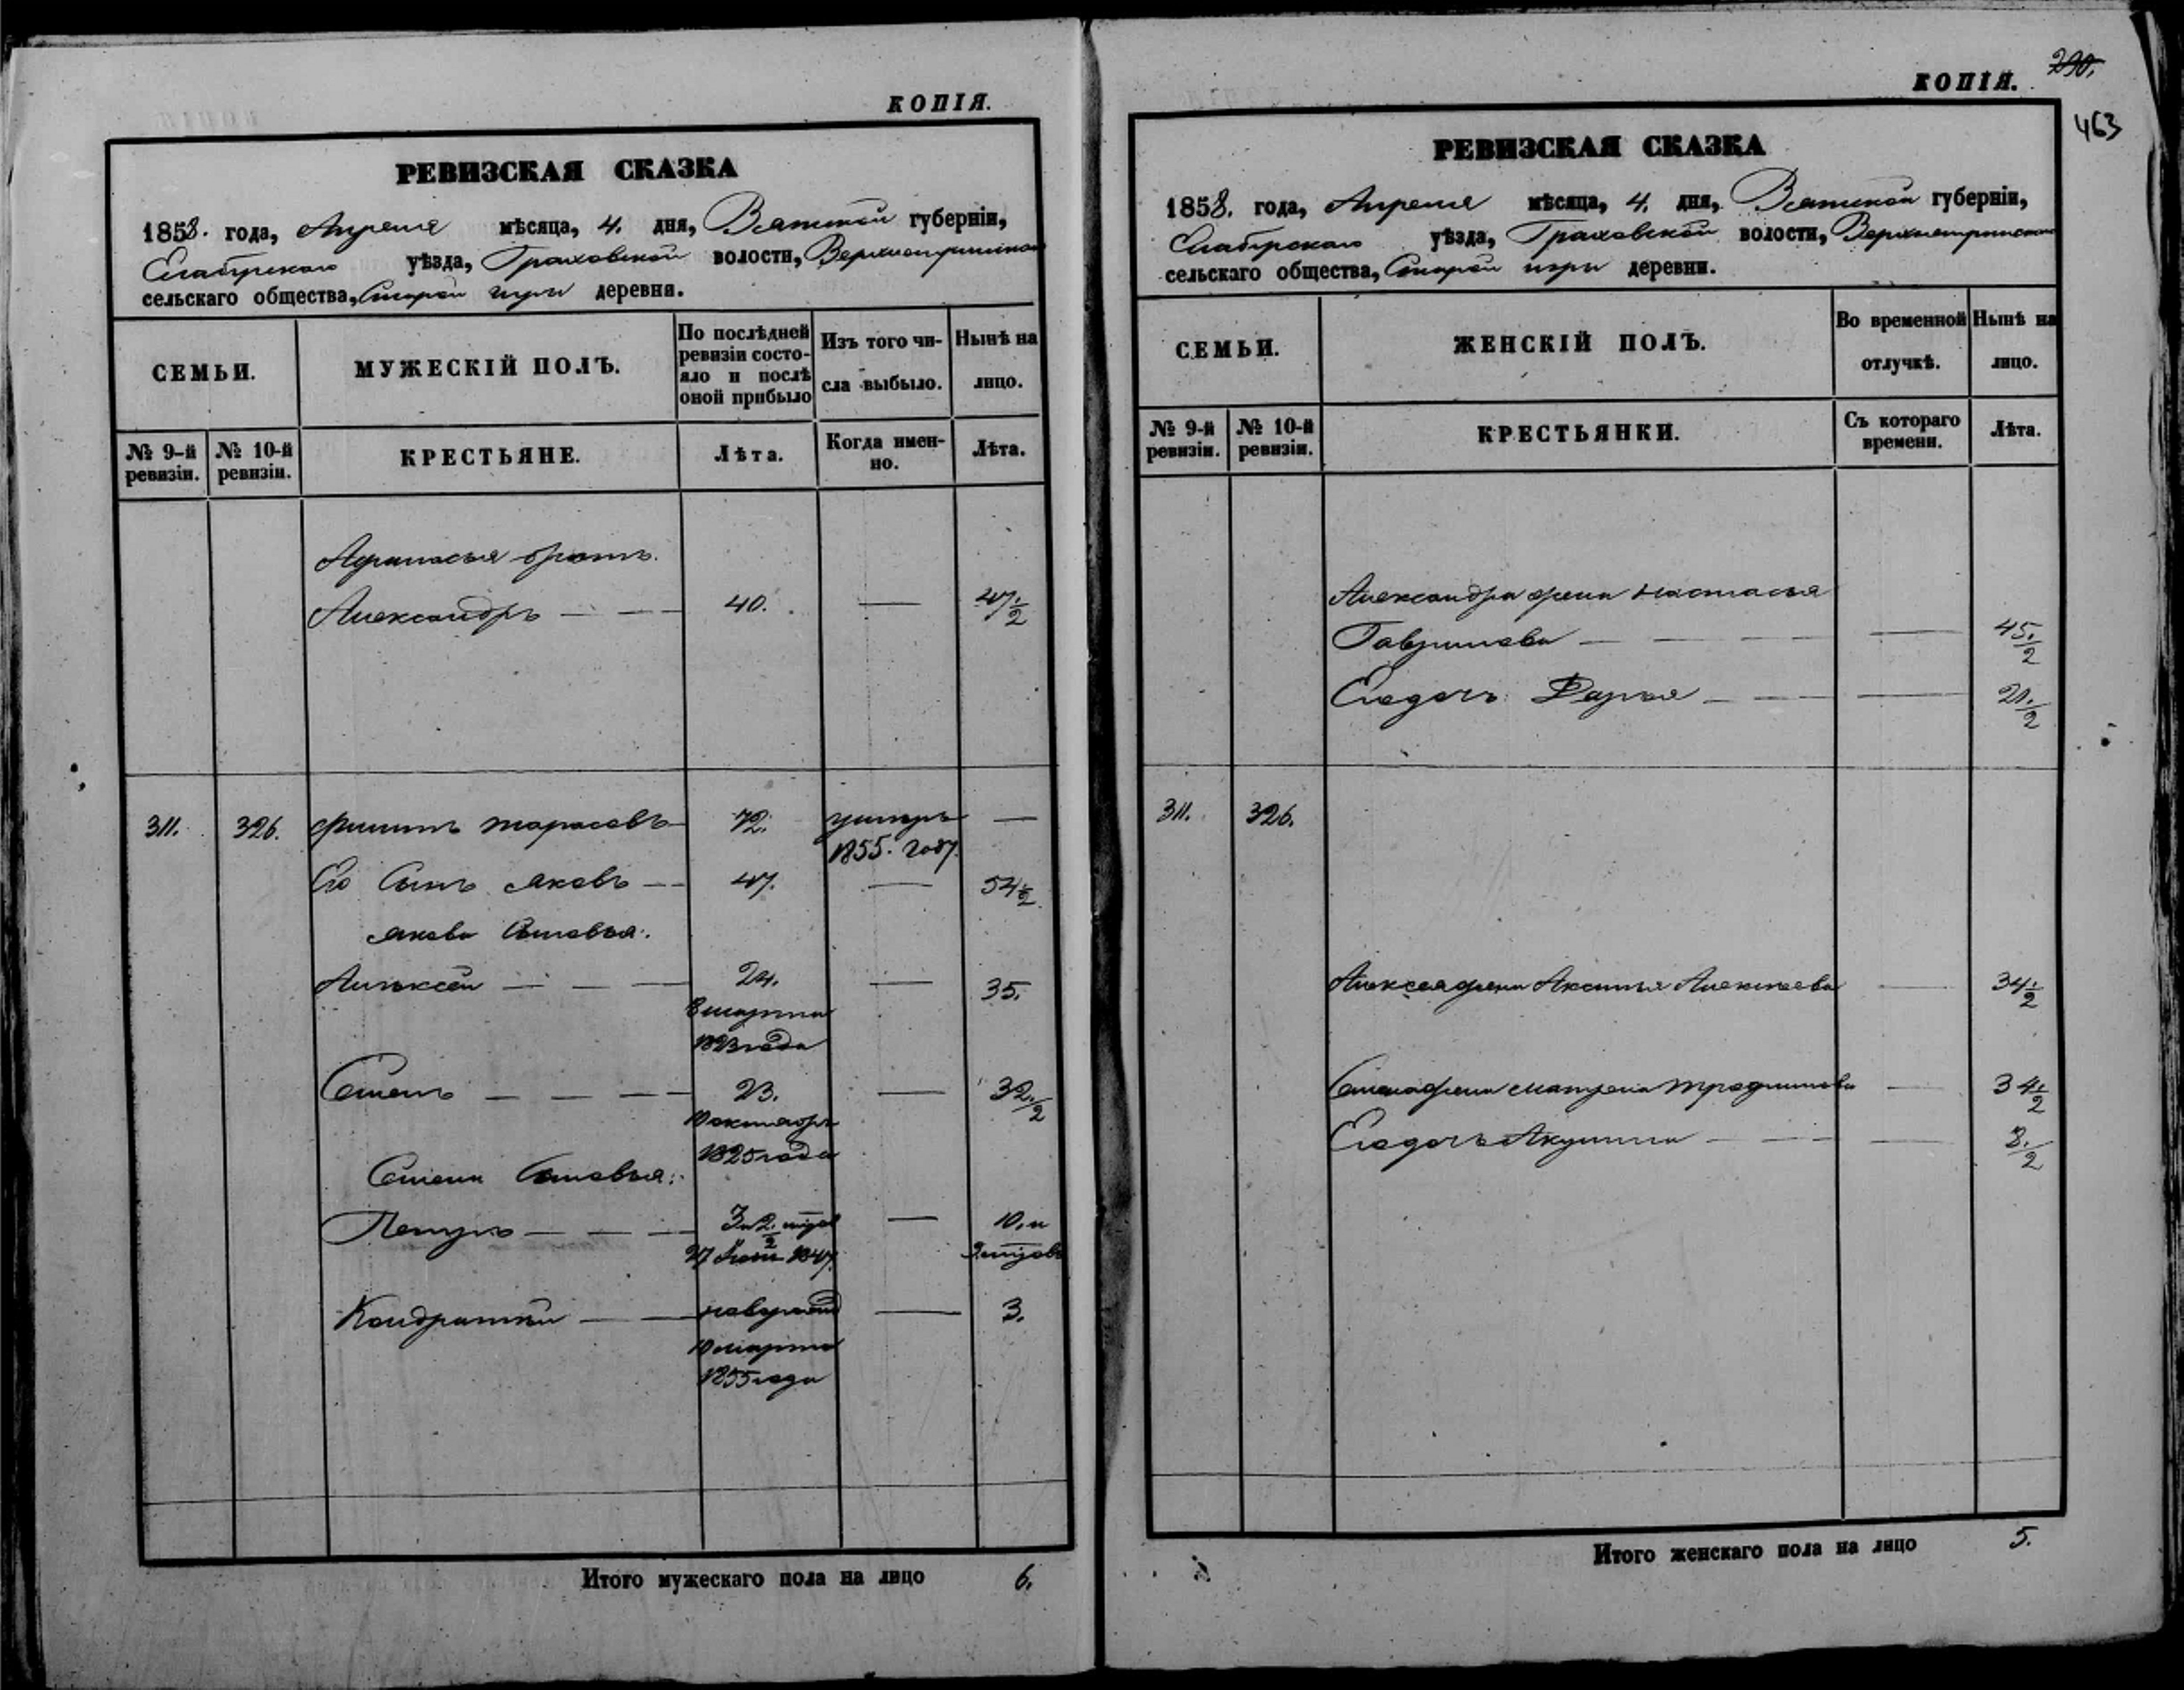 КОПІЯ.
РЕВИЗСКАЯ СКАЗКА
1858. года, Апреля мѣсяца, 4. дня, Вятской губерніи,
Елабугскаго уѣзда, Граховской волости,
сельскаго общества, Старой игры деревни.
СЕМЬИ.
МУЖЕСКІЙ ПОЛЪ.
По послѣдней
ревизіи состо-
яло и послѣ
оной прибыло
Изъ того чи-
сла выбыло.
Нынѣ на
лицо.
№ 9-й
ревизіи.
№ 10-й
ревизіи.
КРЕСТЬЯНЕ.
Лѣта.
Когда имен-
но.
Лѣта.
Афанасья братъ.
Александръ — — 40. — 47 1/2
311. 326. Филипъ Тарасовъ 72. умеръ —
1855. году.
Его Сынъ Яковъ — 47. — 54 1/2
Якова Сыновья:
Алексей — — — 24. — 35.
8 марта
1823 года
Семенъ — — — 23. — 32 1/2
10 октября
1825 года
Семена Сыновья:
Петръ — — —
— 10. и
Кондратий — — — 3.
10 марта
1855 года
Итого мужескаго пола на лицо 6.
290.
КОПІЯ.
463
РЕВИЗСКАЯ СКАЗКА
1858. года, Апреля мѣсяца, 4. дня, Вятской губерніи,
Елабугскаго уѣзда, Граховской волости,
сельскаго общества, Старой игры деревни.
СЕМЬИ.
ЖЕНСКІЙ ПОЛЪ.
Во временной
отлучкѣ.
Нынѣ на
лицо.
№ 9-й
ревизіи.
№ 10-й
ревизіи.
КРЕСТЬЯНКИ.
Съ котораго
времени.
Лѣта.
Александра жена Настасья
Гаврилова — — — — 45 1/2
Его дочь Дарья — — — 21 1/2
311. 326.
Алексея жена Аксинья Алексеева — 34 1/2
Семена жена Матрена — 34 1/2
Его дочь Акулина — — — 8 1/2
Итого женскаго пола на лицо 5.